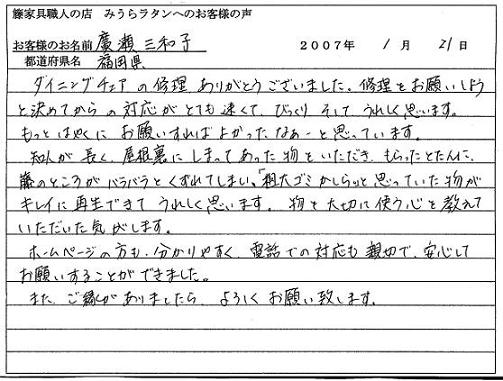 籐家具職人の店 みうらラタンへのお客様の声
お客様のお名前 廣瀬 三和子 2007年 1月 21日
都道府県名 福岡県
ダイニングチェアの修理 ありがとうございました。修理をお願いしよう
と決めてからの対応がとても速くて、びっくり そして うれしく思います。
もっと はやくに お願いすれば よかったなあーと思っています。
知人が 長く、屋根裏に しまってあった物をいただき、もらったとたんに、
籐のところが バラバラと くずれてしまい、「粗大ゴミかしらっと思っていた物が
キレイに再生できて うれしく思います。 物を大切に使う心を教えて
いただいた気がします。
ホームページの方も、分かりやすく、電話での対応も 親切で、安心して
お願いすることができました。
また、ご縁がありましたら、よろしく お願い致します。